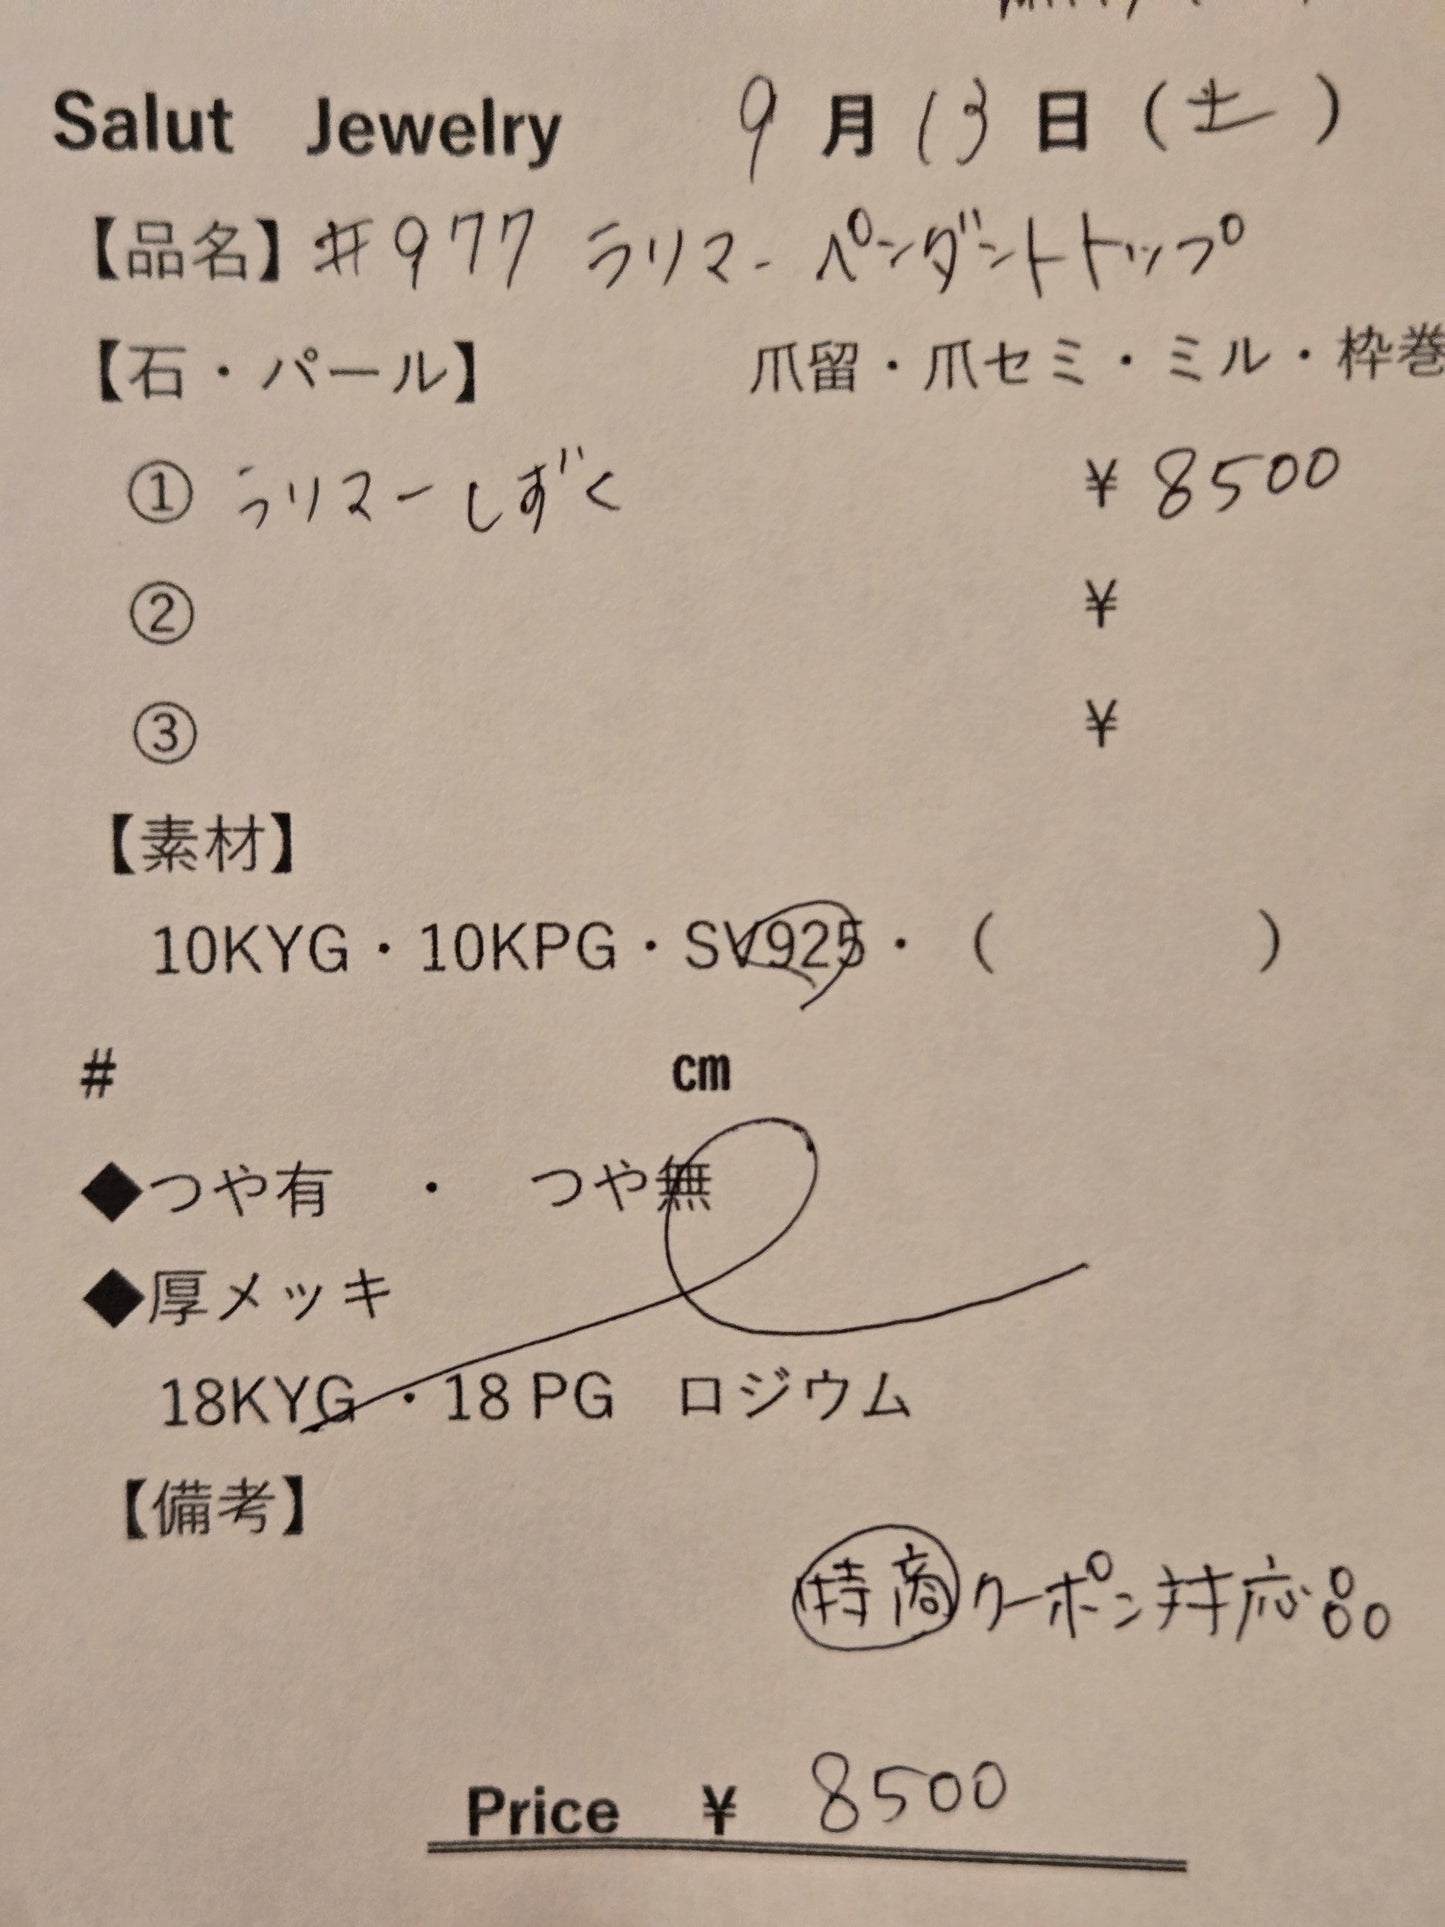 Salut Jewelry 9月13日(土)
【品名】#977 ラリマー ペンダントトップ
【石・パール】 爪留・爪セミ・ミル・枠巻
① ラリマーしずく ¥8500
② ¥
③ ¥
【素材】
10KYG・10KPG・SV925・( )
# cm
◆つや有 ・ つや無
◆厚メッキ
18KYG ・18 PG ロジウム
【備考】
特商クーポン対応品
Price ¥ 8500